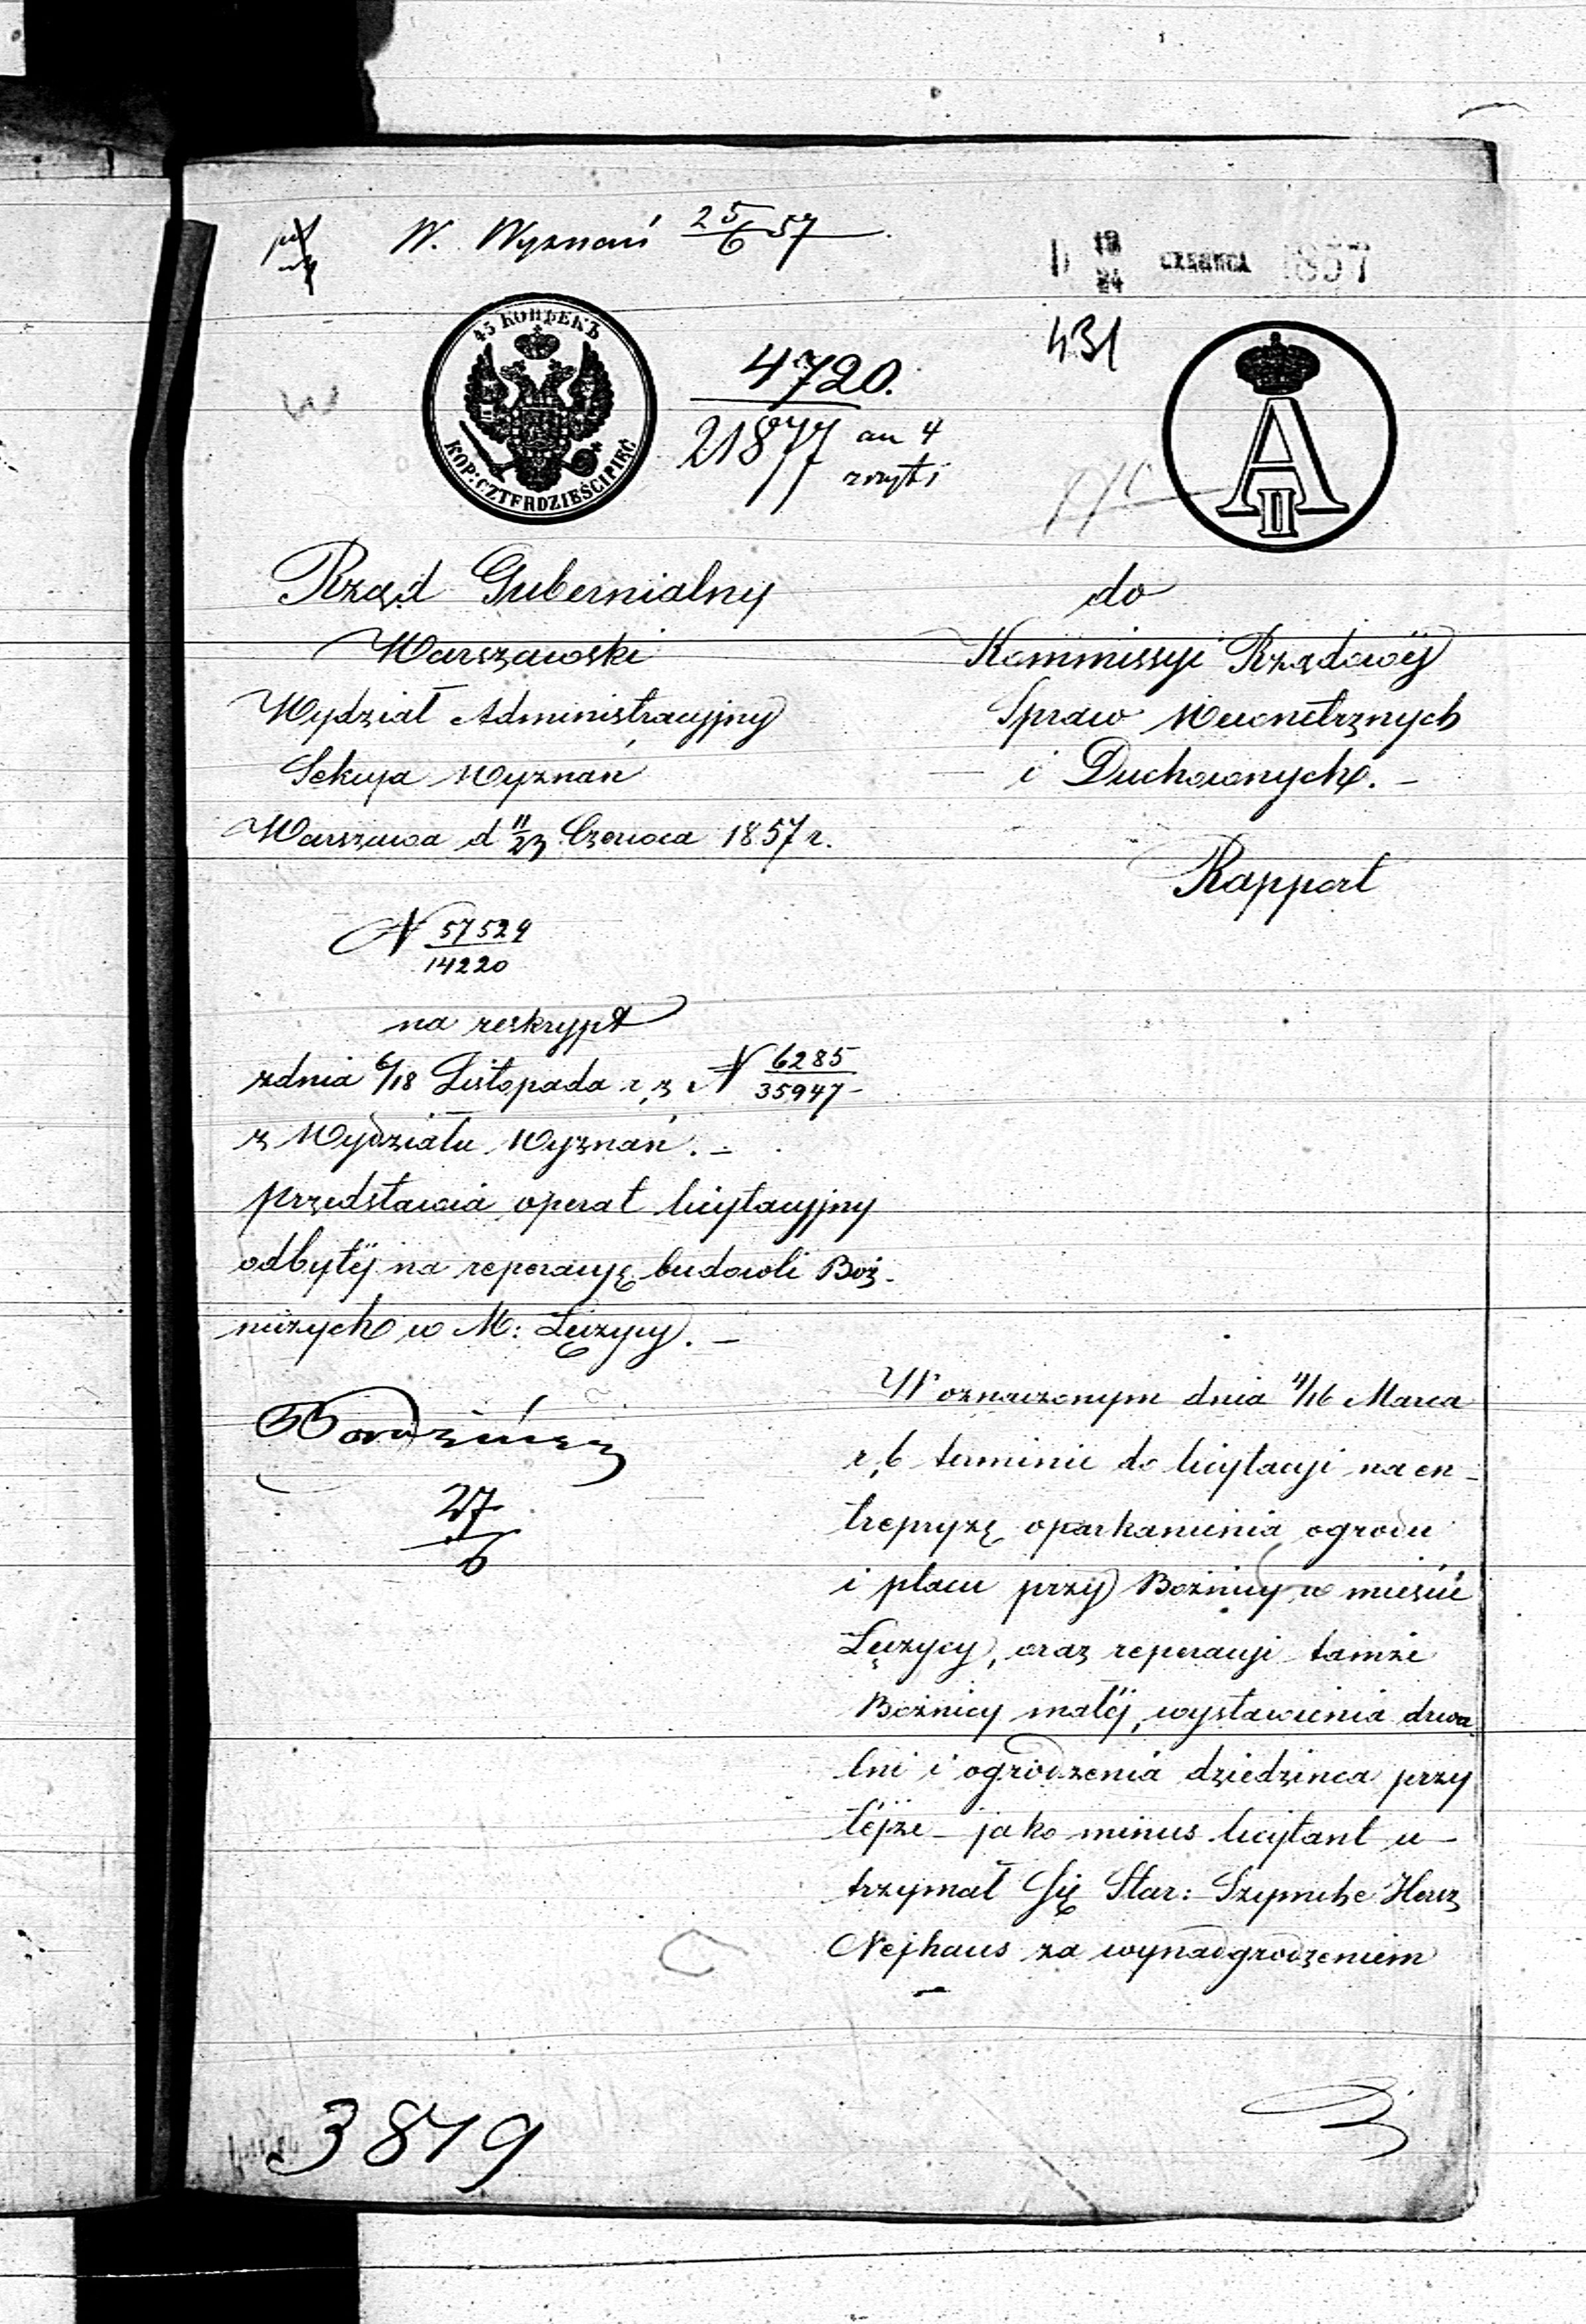 W. Wyznań 25/6 57
12/24 CZERWCA 1857
431
45 КОПѢЕКЪ
KOP: CZTERDZIEŚCI PIĘĆ
4720.
21877 an 4
A II
Rząd Gubernialny
Warszawski
Wydział Administracyjny
Sekcyja Wyznań
Warszawa d 11/23 Czerwca 1857 r.
do
Kommissyi Rządowéj
Spraw Wewnętrznych
i Duchownych. –
Rapport
N 57529/14220
na reskrypt
z dnia 6/18 Listopada r. z. N 6285/35947
z Wydziału Wyznań. –
przedstawia operat licytacyjny
odbytéj na reperacyę budowli Boż-
niczych w M: Łęczycy. –
27/6
W oznaczonym dnia 4/16 Marca
r. b terminie do licytacyi na en-
trepryzę oparkanienia ogrodu
i placu przy Bożnicy w mieście
Łęczycy, oraz reperacyi tamże
Bożnicy małéj, wystawienia drwa-
lni i ogrodzenia dziedzińca przy
téjże – jako minus licytant u-
trzymał się Star: Szymche Hersz
Nejhaus za wynadgrodzeniem
3819